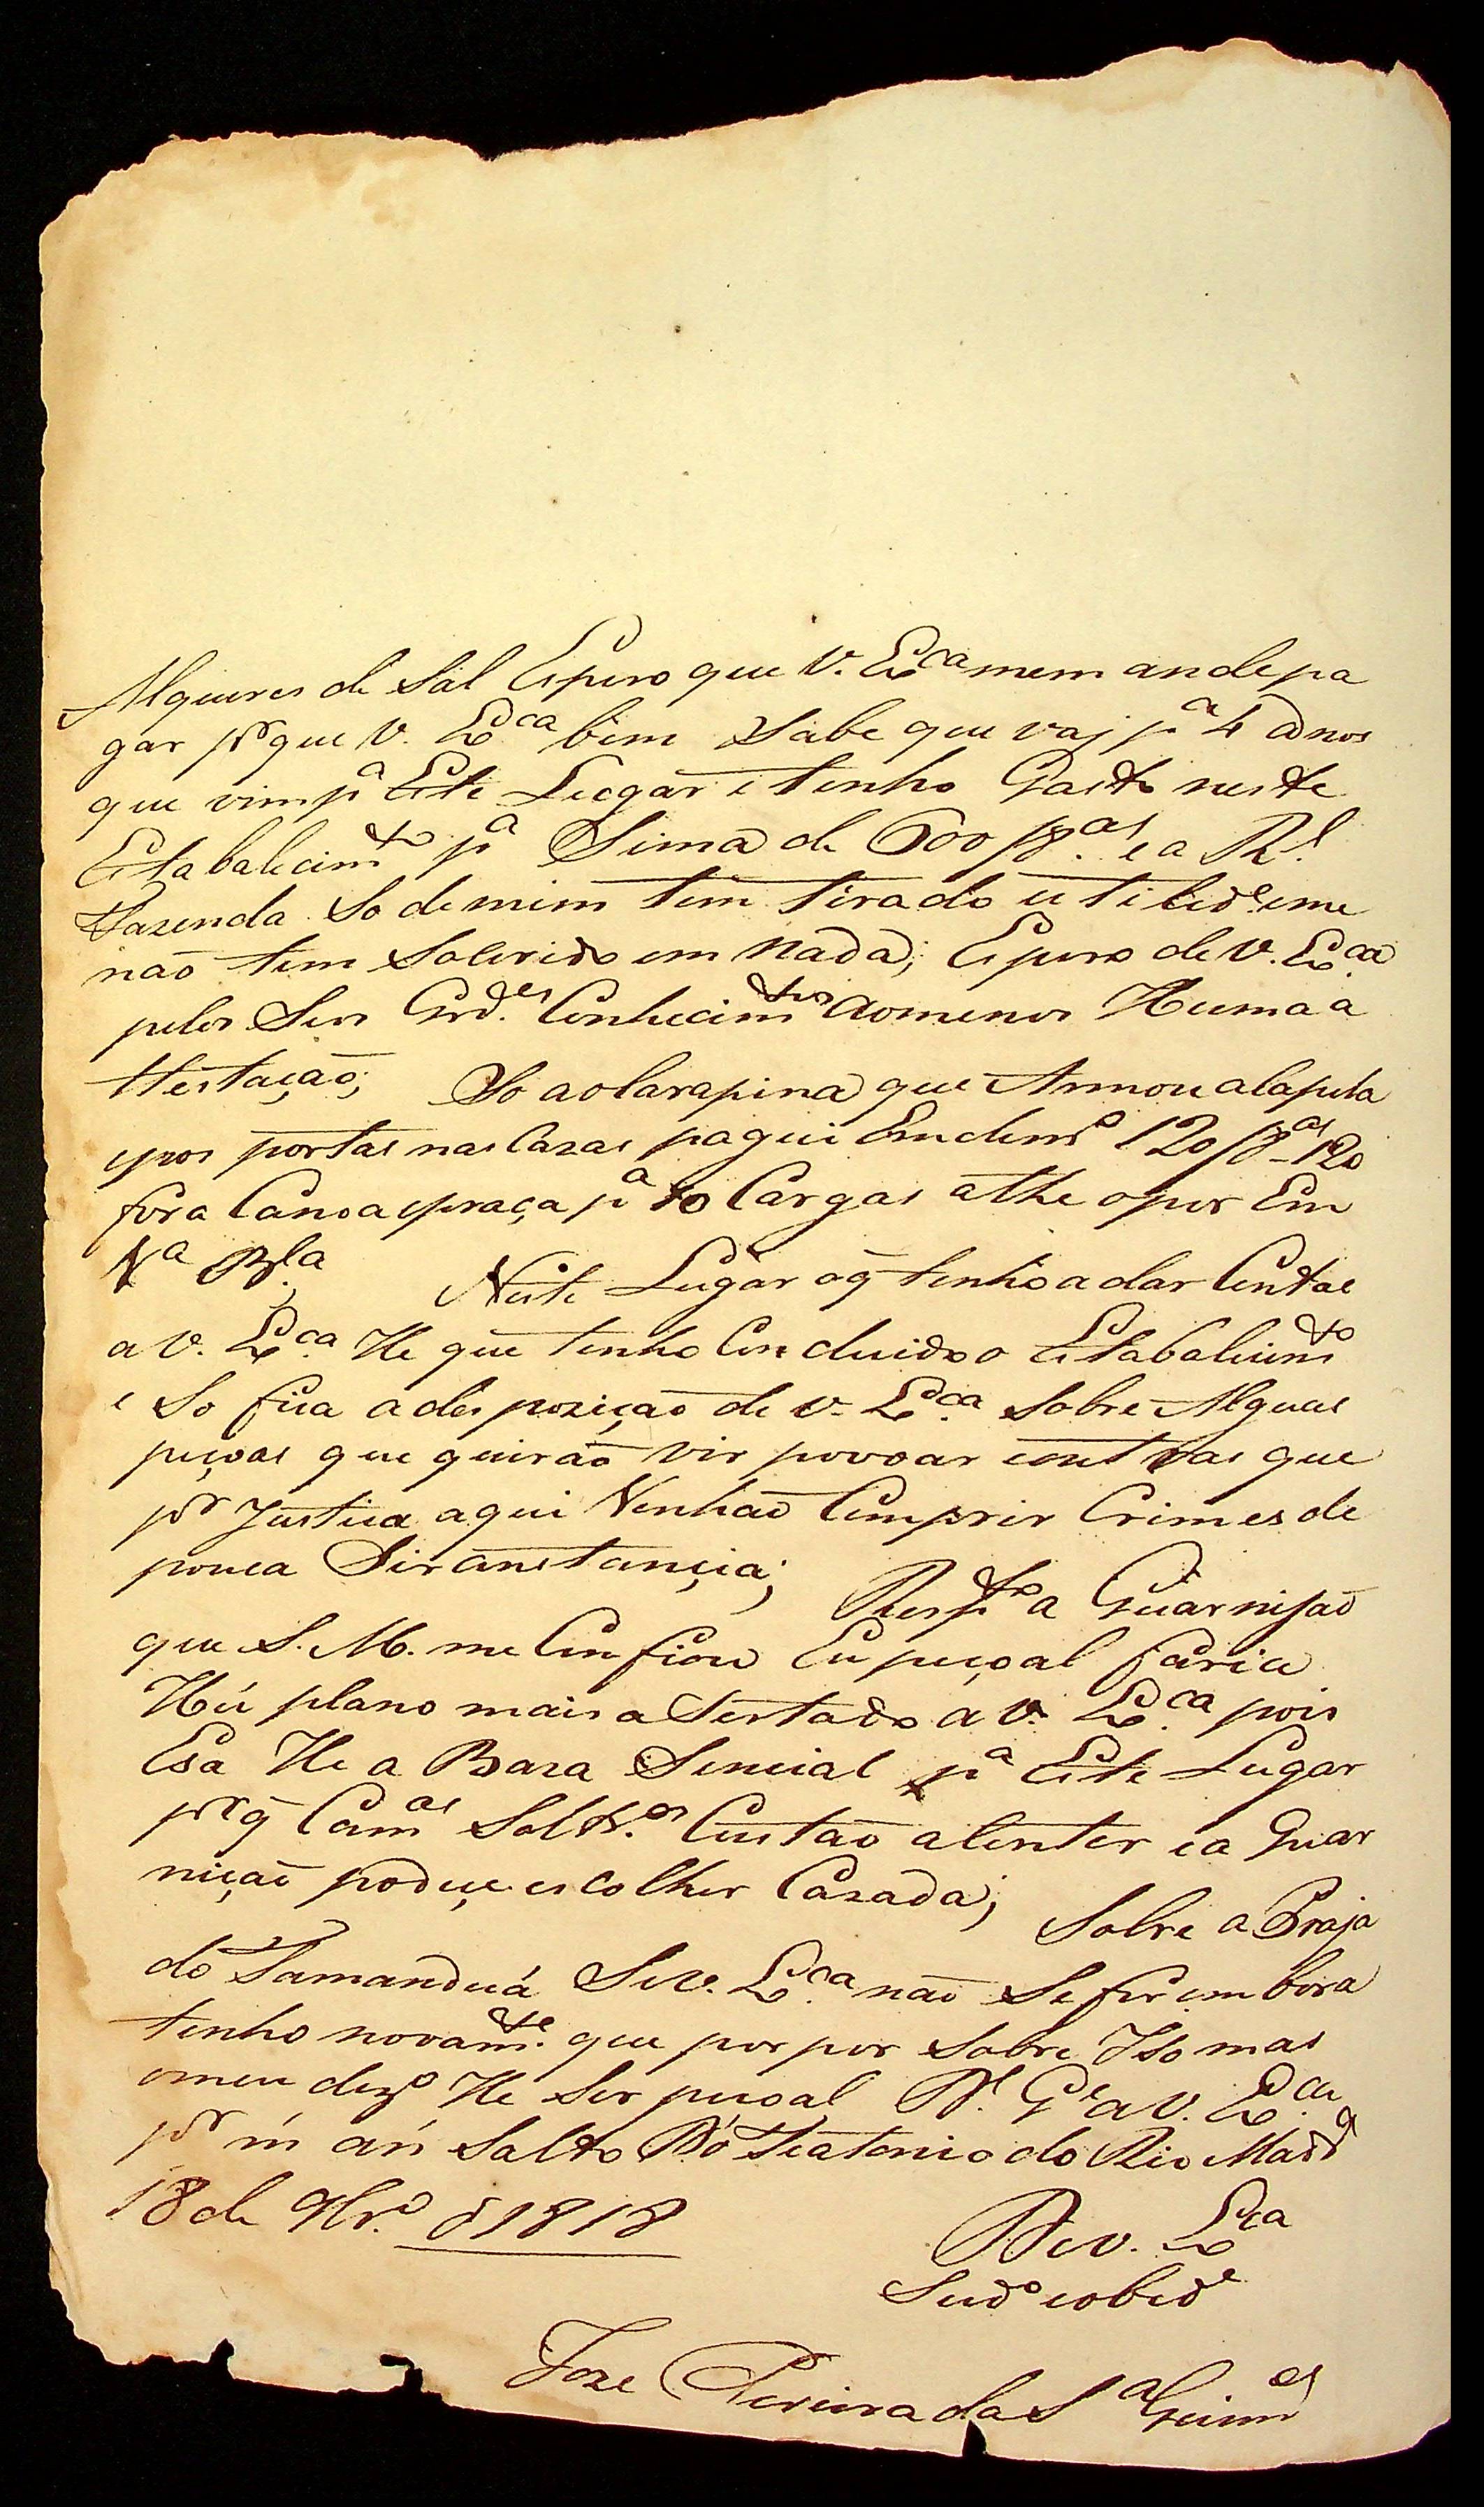 Alqueires de Sal Espero que V. Exca mem ande pa
gar pr que V. Exca bem Sabe que vaj pa 4 annos
que vim pa Este Lugar e tenho Gasto neste
Estabalecimto pa Sima de 600/8.as e a Rl.
Fazenda So de mim tem tirado utelide. eme
não tem Solcrido em nada; Espero de V. Exca
pelos Seus Grdes. Conhecimtos aomenos Huma a
ttestação; So ao Carapina que Armou a Capela
epos portas nas Cazas paguei Em dro 120/8as - 120
fora Canoa epraça pa 10 Cargas athe opor Em
Va Bla. Neste Lugar o q̃ tenho a dar Contas
a V. Exca. He que tenho Concluido o Estabalecimto
e So fica a desposição de V. Exca. Sobre Alguas
peçoas que queirão vir povoar eoutras que
pr Justica aqui Venhão Comprir Crimes de
pouca Sircunstançia; Respto a Guarnisão
que S. M. me Confiou Eu peçoal faria
Hú plano mais aSertado a V. Exca. pois
Esa He a Baza Sencial pa Este Lugar
pr q̃ Camas Soltros. Custão a Conter e a Guar
nição podece escolher Cazada; Sobre a Praja
do Tamanduá Se V. Exca. não Se for embora
tenho novamte. que por por Sobre Iso mas
omeu dezo He Ser peçoal Ds. Ge a V. Exca.
pr ms ans Salto Do Teatonio do Rio Madra
18 de 9br.o d 1818
De V. Exca
Sudo eobede
Joze Pereira da Sa Guimes